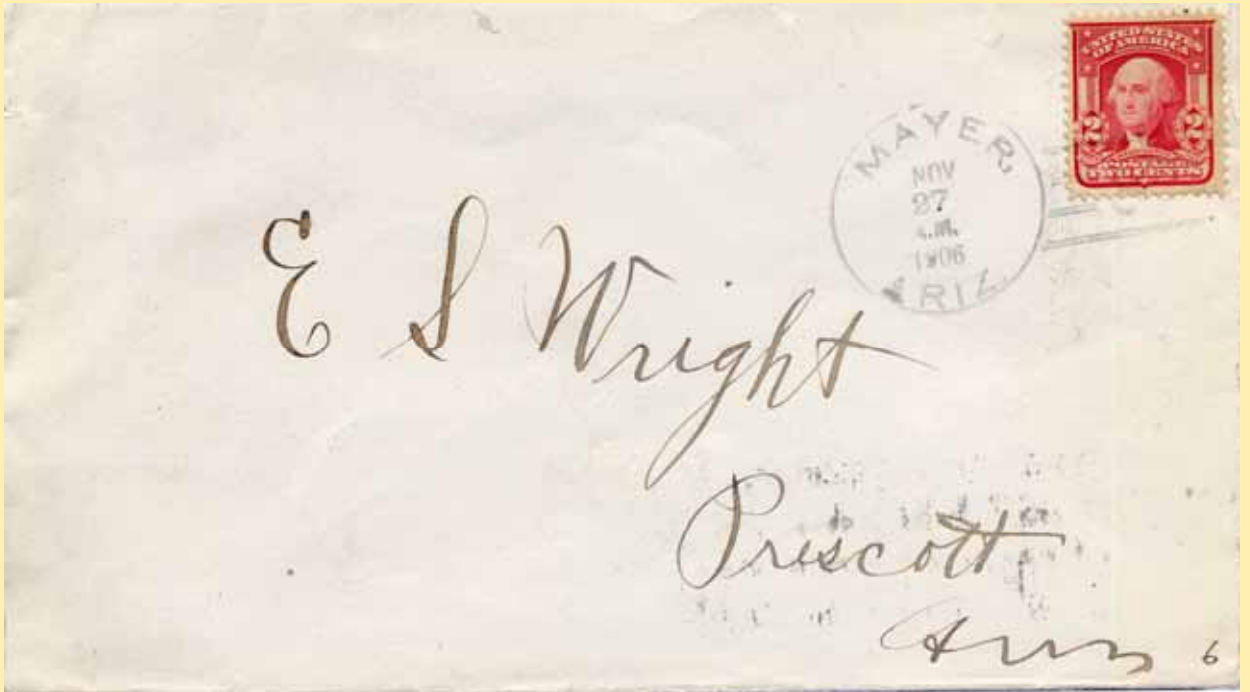 UNITED STATES
OF AMERICA
2 2
POSTAGE
TWO CENTS
MAYER
NOV
27
A.M.
1906
ARIZ.
E S Wright
Prescott
Ariz
6